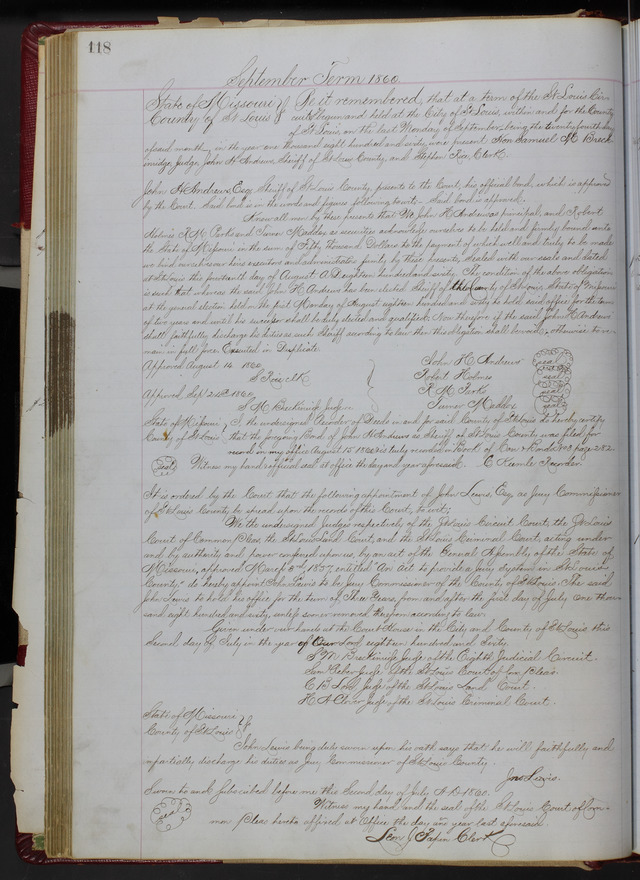 118
September Term 1860
State of Missouri } Be it remembered, that at a term of the St Louis Cir-
County of St Louis } cuit begun and held at the City of St Louis, within and for the County
of St Louis on the last Monday of September, being the twenty fourth day
of said month, in the year one thousand eight hundred and sixty, were present Hon Samuel M Breck
inridge, Judge, John H Andrews, Sheriff of St Louis County, and Stephen Rice Clerk.
John H Andrews, Esq Sheriff of St Louis County, presents to the Court, his official bond, which is approved
by the Court. Said bond is in the words and figures following towit. Said bond is approved.
Know all men by these presents that We John H Andrews as principal, and Robert
Holmes R M Parks and Turner Maddox as securities acknowledge ourselves to be held and firmly bound unto
the State of Missouri in the sum of Fifty thousand Dollars to the payment of which well and truly to be made
we bind ourselves our heirs executors and administrators firmly by these presents, sealed with our seals and dated
at St Louis this fourteenth day of August A.D eighteen hundred and sixty. The condition of the above obligation
is such that whereas the said John H Andrews has been elected Sheriff of the County of St Louis State of Missouri
at the general election held on the first Monday of August eighteen hundred and sixty to hold said office for the term
of two years and until his successor shall be duly elected and qualified. Now therefore if the said John H Andrews
shall faithfully discharge his duties as such Sheriff according to law then this obligation shall be void, otherwise to re-
main in full force. Executed in Duplicate.
Approved August 14 1860
S Rice Clk
Approved Sept 24th 1860
S M Breckinridge Judge
John H Andrews seal
Robert Holmes seal
R M Park seal
Turner Maddox seal
State of Missouri } I, the undersigned Recorder of Deeds in and for said County of St Louis do hereby certify
County of St Louis } that the foregoing Bond of John H Andrews as Sheriff of St Louis County was filed for
record in my office August 15 1860 & is duly recorded in Book of page 282
seal Witness my hand & official seal at office the day and year aforesaid. C Keemle Recorder.
It is ordered by the Court that the following appointment of John Lewis, Esq as Jury Commissioner
of St Louis County be spread upon the records of this Court, to wit;
We the undersigned Judges respectively of the St Louis Circuit Court, the St Louis
Court of Common Pleas, the St Louis Land Court, and the St Louis Criminal Court, acting under
and by authority and power conferred upon us, by an act of the General Assembly of the State of
Missouri, approved March 3rd, 1857, entitled "An Act to provide a jury system in St Louis
County" do hereby appoint John Lewis to be Jury Commissioner of the County of St Louis. The said
John Lewis to hold his office for the term of Three Years, from and after the first day of July, one thou
sand eight hundred and sixty, unless sooner removed therefrom according to law.
Given under our hands at the Court House in the City and County of St Louis this
Second day of July in the year of Our Lord eighteen hundred and Sixty.
S M Breckinridge Judge of the Eighth Judicial Circuit.
Sam Reber Judge of the St Louis Court of Com Pleas.
C B Lord Judge of the St Louis Land Court.
H A Clover Judge of the St Louis Criminal Court.
State of Missouri }
County of St Louis }
John Lewis being duly sworn upon his oath says that he will faithfully and
impartially discharge his duties as Jury Commissioner of St Louis County.
Jno Lewis.
Sworn to and Subscribed before me this Second day of July A D 1860.
seal Witness my hand and the seal of the St Louis Court of Com-
mon Pleas hereto affixed at Office the day and year last aforesaid.
Clerk